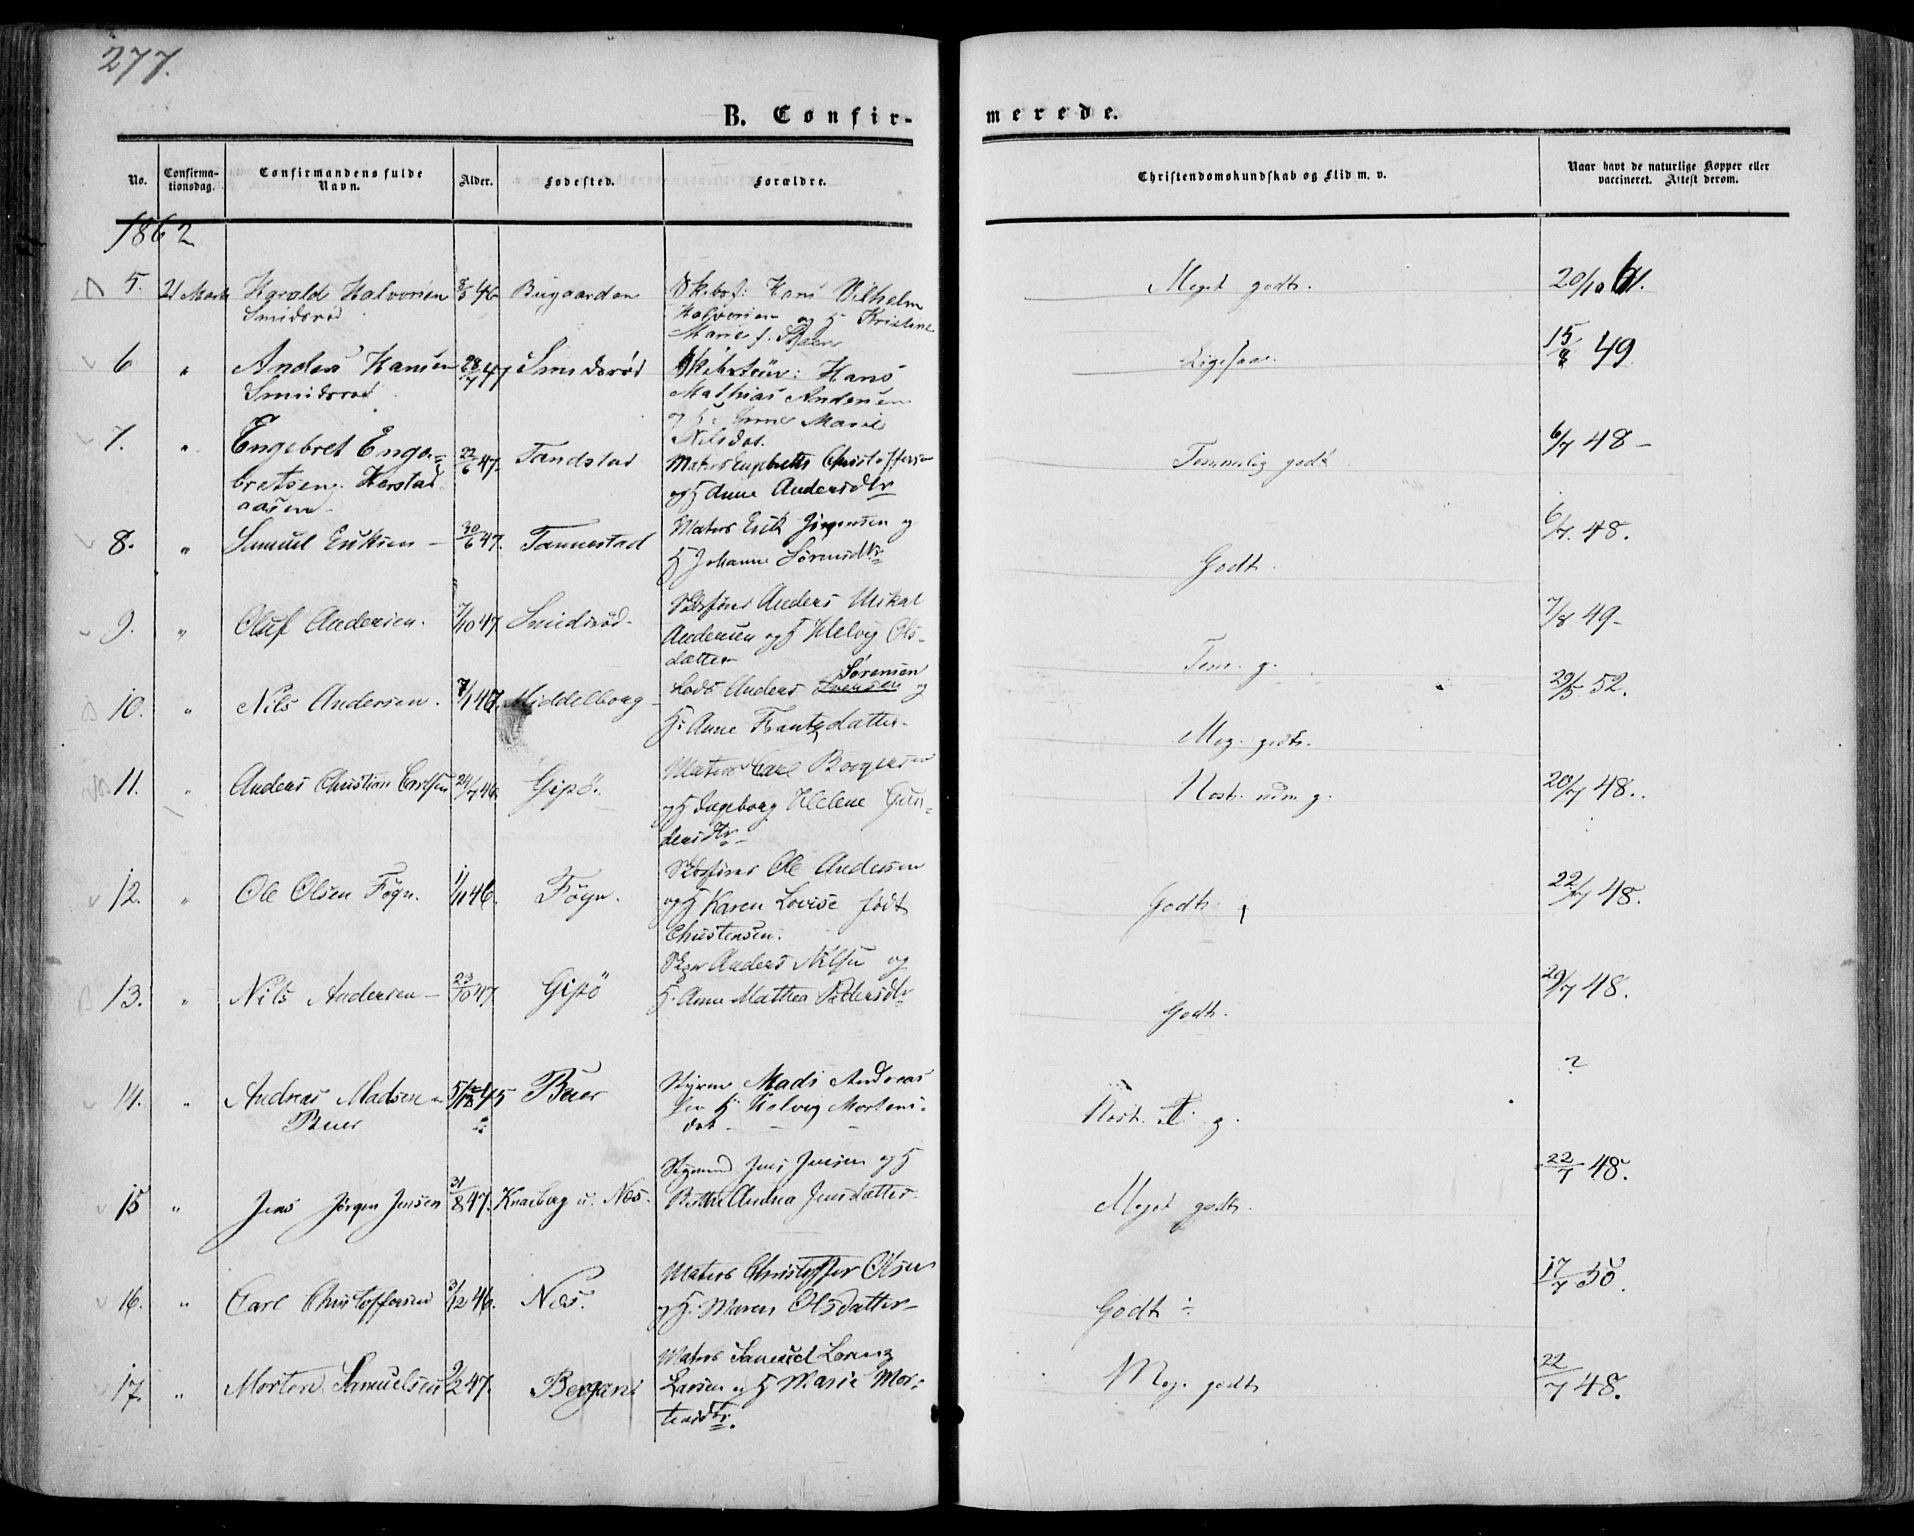 277.
B. Confir-
merede.
No.
Confirma-
tionsdag.
Confirmandens fulde
Navn.
Alder.
Fødested.
Forældre.
Christendomskundskab og Flid m. v.
Naar havt de naturlige Kopper eller
vaccineret. Attest derom.
1862
5. 21 Marts Harald Halvorsen 46 Bugaarden Hans Vilhelm Meget godt. 20/10 61.
Smidsrød Halvorsen og H Kristine
Marie f.
6 " Anders Hansen 28/7 47 Smidsrød : Hans Ligesaa 15/8 49
Smidsrød Mathias Andersen
og H: Anne Marie
Nilsdat.
7. " Engebret Enge= 22/6 47. Tandstad Matros Engebrett Christoffersen Temmelig godt 6/7 48-
bretsen Herstad og H Anne Andersdtr
aasen
8. " Samuel Eriksen - 30/6 47. Tannestad Matros Erik Jørgensen og Godt. 6/7. 48.
H Johanne Sørensdtr
9. " Oluf Andersen. 7/10 47. Smidsrød. Anders Mikal Tem. g. 7/8 49-
Andersen og H Helvig Ols-
datter
10. " Nils Andersen. 7/1 47. Middelborg Lods Anders Svensen Sørensen og Meg. godt. 29/5 52.
H: Anne Frantzdatter.
11. " Anders Christian Carlsen 24/7 46. Gipø. Matros Carl Borgersen Nost. num g. 20/7 48.
og H Ingeborg Helene Gun-
dersdtr
12. " Ole Olsen Føgn. 1/11 46. Føgn. Ole Andersen Godt. 22/7 48.
og H Karen Lovise født
Christensen.
13. " Nils Andersen - 23/10 47. Gipø Anders Nilsen og Godt. 29/7 48.
H. Anne Mathea Pedersdtr
14. " Andreas Madsen 5/12 45 Buer Styrm Mads Andreas ?
Buer sen H Helvig Mortens-
dat. Nost. T. g.
15 " Jens Jørgen Jensen 31/8 47. Knarberg u. Nes. Styrmd Jens Jensen og H Meget godt. 22/7 48.
Andrea Jensdatter
16. " Carl Christoffersen 31/12 46. Nes. Matros Christoffer Olsen Godt ÷ 17/7 50.
og H. Maren Olsdatter
17. " Morten Samuelsen 9/2 47. Bergan Matros Samuel Lorenz Meg. godt 22/7 48.
Larsen og H Marie Mor-
tensdtr.